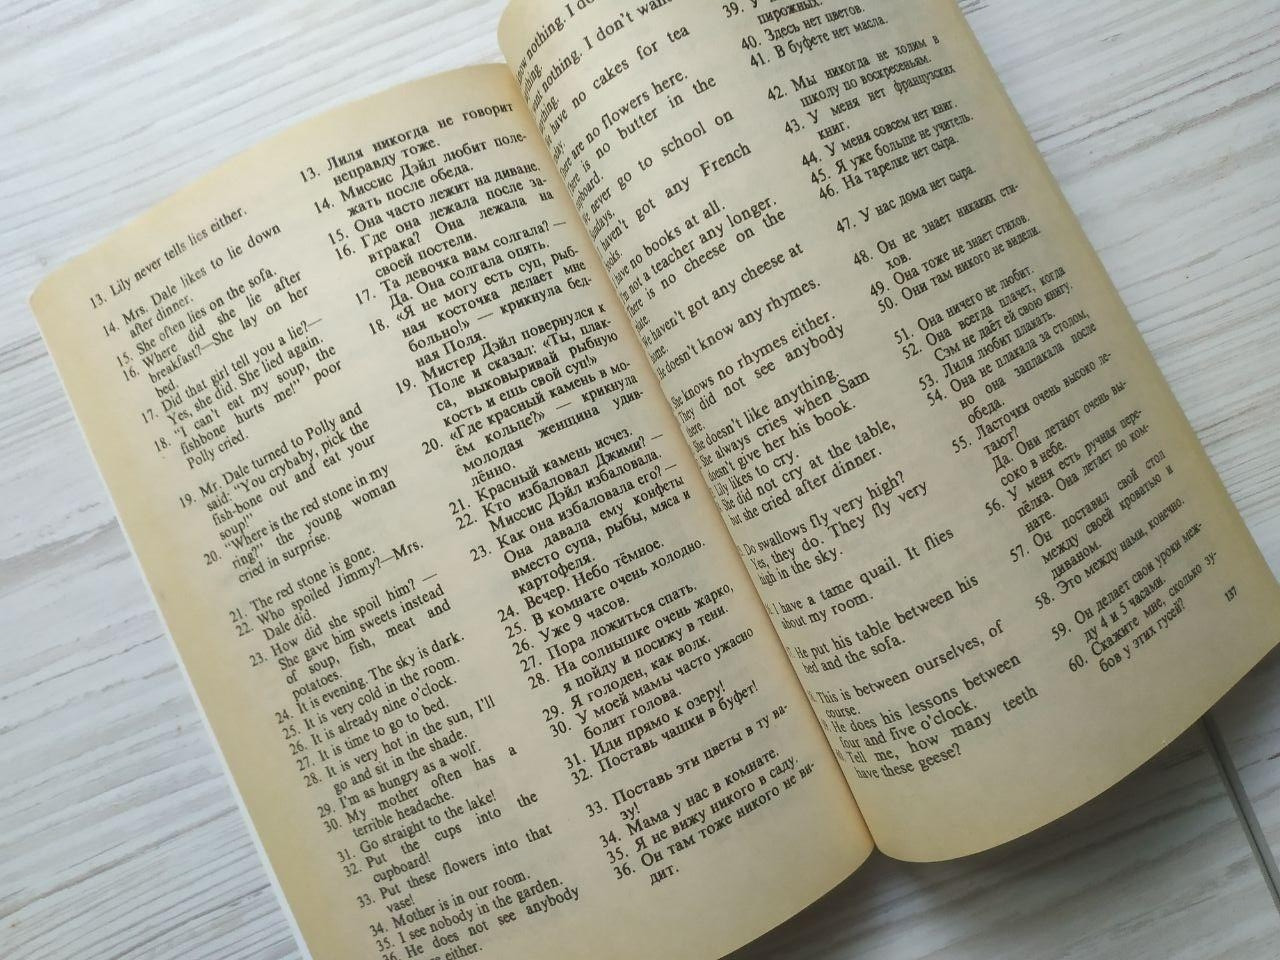 13. Lily never tells lies either.
14. Mrs. Dale likes to lie down
after dinner.
15. She often lies on the sofa.
16. Where did she lie after
breakfast?—She lay on her
bed.
17. Did that girl tell you a lie?—
Yes, she did. She lied again.
18. "I can't eat my soup, the
fishbone hurts me!" poor
Polly cried.
19. Mr. Dale turned to Polly and
said: "You crybaby, pick the
fish-bone out and eat your
soup!"
20. "Where is the red stone in my
ring?" the young woman
cried in surprise.
21. The red stone is gone.
22. Who spoiled Jimmy?—Mrs.
Dale did.
23. How did she spoil him? —
She gave him sweets instead
of soup, fish, meat and
potatoes.
24. It is evening. The sky is dark.
25. It is very cold in the room.
26. It is already nine o'clock.
27. It is time to go to bed.
28. It is very hot in the sun, I'll
go and sit in the shade.
29. I'm as hungry as a wolf.
30. My mother often has a
terrible headache.
31. Go straight to the lake!
32. Put the cups into the
cupboard!
33. Put these flowers into that
vase!
34. Mother is in our room.
35. I see nobody in the garden.
36. He does not see anybody
either.
13. Лиля никогда не говорит
неправду тоже.
14. Миссис Дэйл любит поле-
жать после обеда.
15. Она часто лежит на диване.
16. Где она лежала после за-
втрака? Она лежала на
своей постели.
17. Та девочка вам солгала? —
Да. Она солгала опять.
18. «Я не могу есть суп, рыб-
ная косточка делает мне
больно!» — крикнула бед-
ная Поля.
19. Мистер Дэйл повернулся к
Поле и сказал: «Ты, плак-
са, выковыривай рыбную
кость и ешь свой суп!»
20. «Где красный камень в мо-
ём кольце?» — крикнула
молодая женщина удив-
лённо.
21. Красный камень исчез.
22. Кто избаловал Джими? —
Миссис Дэйл избаловала.
23. Как она избаловала его? —
Она давала ему конфеты
вместо супа, рыбы, мяса и
картофеля.
24. Вечер. Небо тёмное.
25. В комнате очень холодно.
26. Уже 9 часов.
27. Пора ложиться спать.
28. На солнышке очень жарко,
я пойду и посижу в тени.
29. Я голоден, как волк.
30. У моей мамы часто ужасно
болит голова.
31. Иди прямо к озеру!
32. Поставь чашки в буфет!
33. Поставь эти цветы в ту ва-
зу!
34. Мама у нас в комнате.
35. Я не вижу никого в саду.
36. Он там тоже никого не ви-
дит.
know nothing. I
nothing. I don't want
have no cakes for tea
There are no flowers here.
There is no butter in the
cupboard.
We never go to school on
Sundays.
haven't got any French
books.
have no books at all.
I'm not a teacher any longer.
There is no cheese on the
plate.
We haven't got any cheese at
home.
He doesn't know any rhymes.
She knows no rhymes either.
They did not see anybody
there.
She doesn't like anything.
She always cries when Sam
doesn't give her his book.
Lily likes to cry.
She did not cry at the table,
but she cried after dinner.
Do swallows fly very high?
Yes, they do. They fly very
high in the sky.
I have a tame quail. It flies
about my room.
He put his table between his
bed and the sofa.
This is between ourselves, of
course.
He does his lessons between
four and five o'clock.
Tell me, how many teeth
have these geese?
39. У
пирожных.
40. Здесь нет цветов.
41. В буфете нет масла.
42. Мы никогда не ходим в
школу по воскресеньям.
43. У меня нет французских
книг.
44. У меня совсем нет книг.
45. Я уже больше не учитель.
46. На тарелке нет сыра.
47. У нас дома нет сыра.
48. Он не знает никаких сти-
хов.
49. Она тоже не знает стихов.
50. Они там никого не видели.
51. Она ничего не любит.
52. Она всегда плачет, когда
Сэм не даёт ей свою книгу.
53. Лилия любит плакать.
54. Она не плакала за столом,
но она заплакала после
обеда.
55. Ласточки очень высоко ле-
тают?
Да. Они летают очень вы-
соко в небе.
56. У меня есть ручная пере-
пёлка. Она летает по ком-
нате.
57. Он поставил свой стол
между своей кроватью и
диваном.
58. Это между нами, конечно.
59. Он делает свои уроки меж-
ду 4 и 5 часами.
60. Скажите мне, сколько зу-
бов у этих гусей?
137